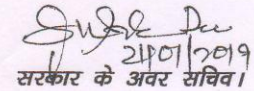 21/01/2019
सरकार के अवर सचिव।